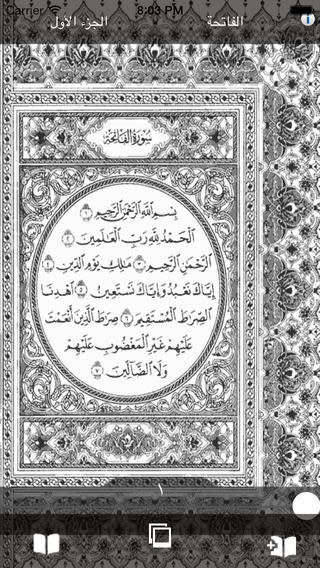 Carrier 8:03 PM
الفاتحة الجزء الأول
سورة الفاتحة
بِسْمِ ٱللَّهِ ٱلرَّحْمَٰنِ ٱلرَّحِيمِ ١
ٱلْحَمْدُ لِلَّهِ رَبِّ ٱلْعَٰلَمِينَ ٢
ٱلرَّحْمَٰنِ ٱلرَّحِيمِ ٣ مَٰلِكِ يَوْمِ ٱلدِّينِ ٤
إِيَّاكَ نَعْبُدُ وَإِيَّاكَ نَسْتَعِينُ ٥ ٱهْدِنَا
ٱلصِّرَٰطَ ٱلْمُسْتَقِيمَ ٦ صِرَٰطَ ٱلَّذِينَ أَنْعَمْتَ
عَلَيْهِمْ غَيْرِ ٱلْمَغْضُوبِ عَلَيْهِمْ
وَلَا ٱلضَّآلِّينَ ٧
١